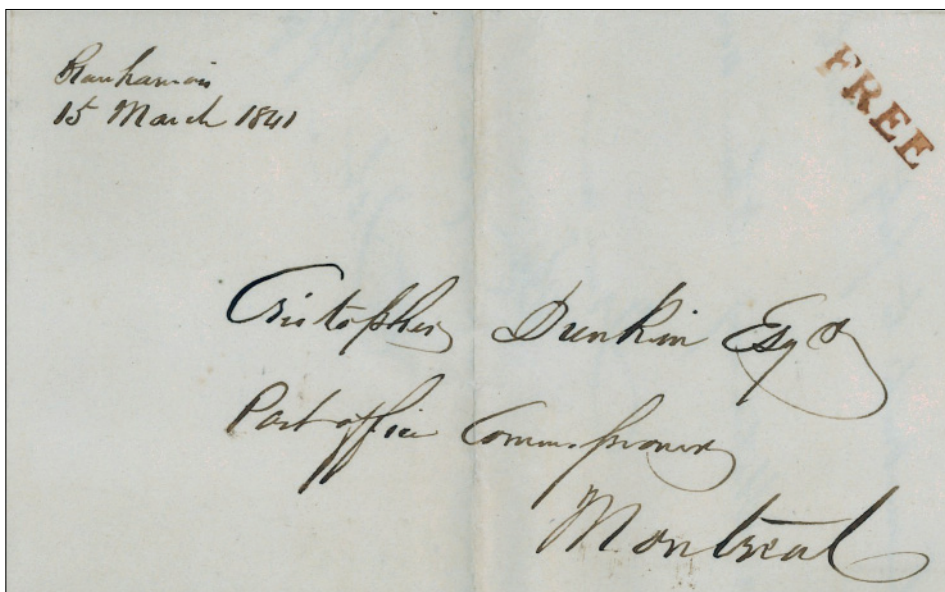 Beauharnois
15 March 1841
FREE
Cristopher Dunkin Esqr
Post office Commissioner
Montreal